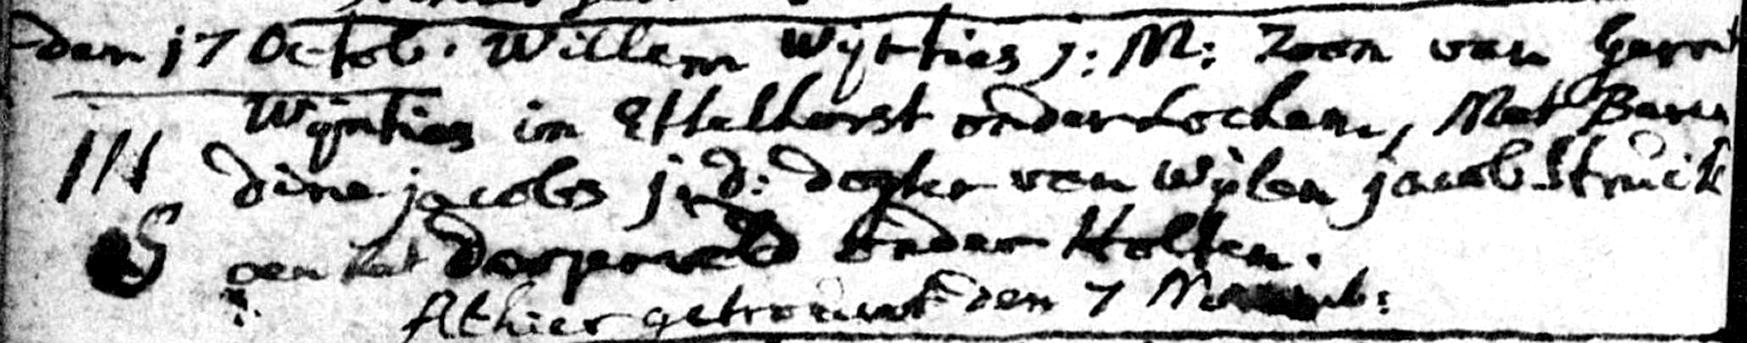 den 17 Octob. Willem Wijnties j: M: Zoon van Gerrit
Wijnties in Effelhorst onder Lochem, Met Beren
III dine jacobs j:d: dogter van Wijlen jacob Struik
S aen het Dorperveld onder Holten.
Alhier getrouwt den 7 Novemb: